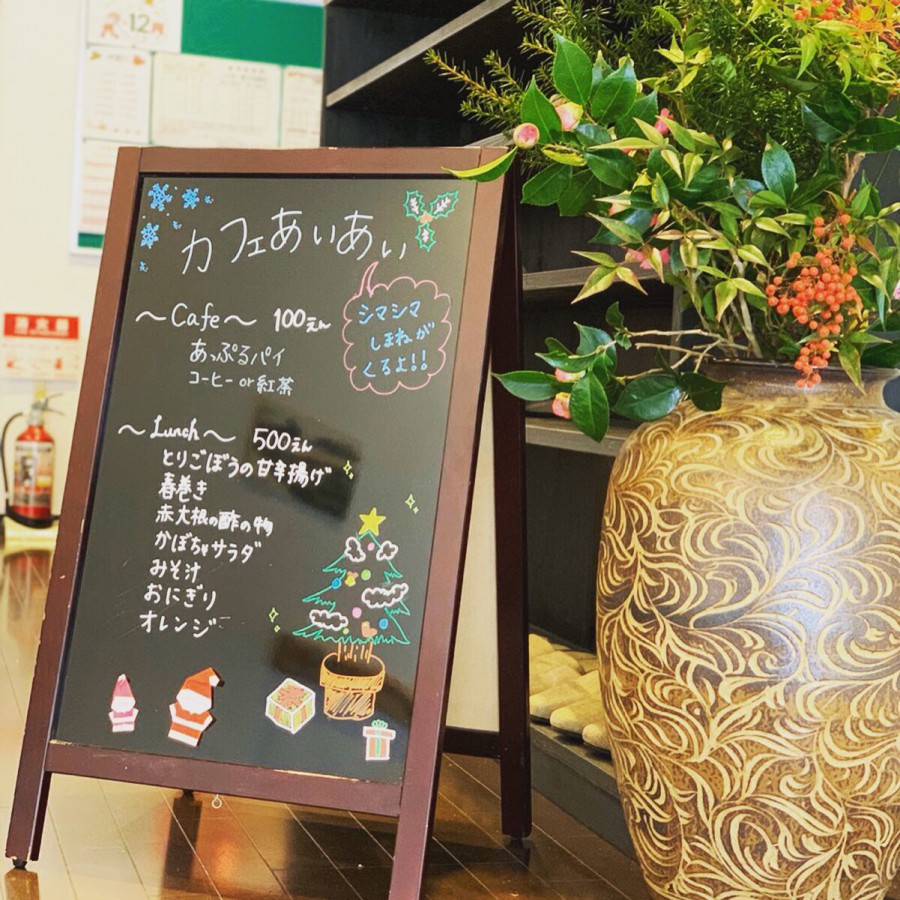 12月
カフェあいあい
〜Cafe〜 100えん
あっぷるパイ
コーヒー or 紅茶
シマシマ
しまねが
くるよ!!
〜Lunch〜 500えん
とりごぼうの甘辛揚げ
春巻き
赤大根の酢の物
かぼちゃサラダ
みそ汁
おにぎり
オレンジ
消火器